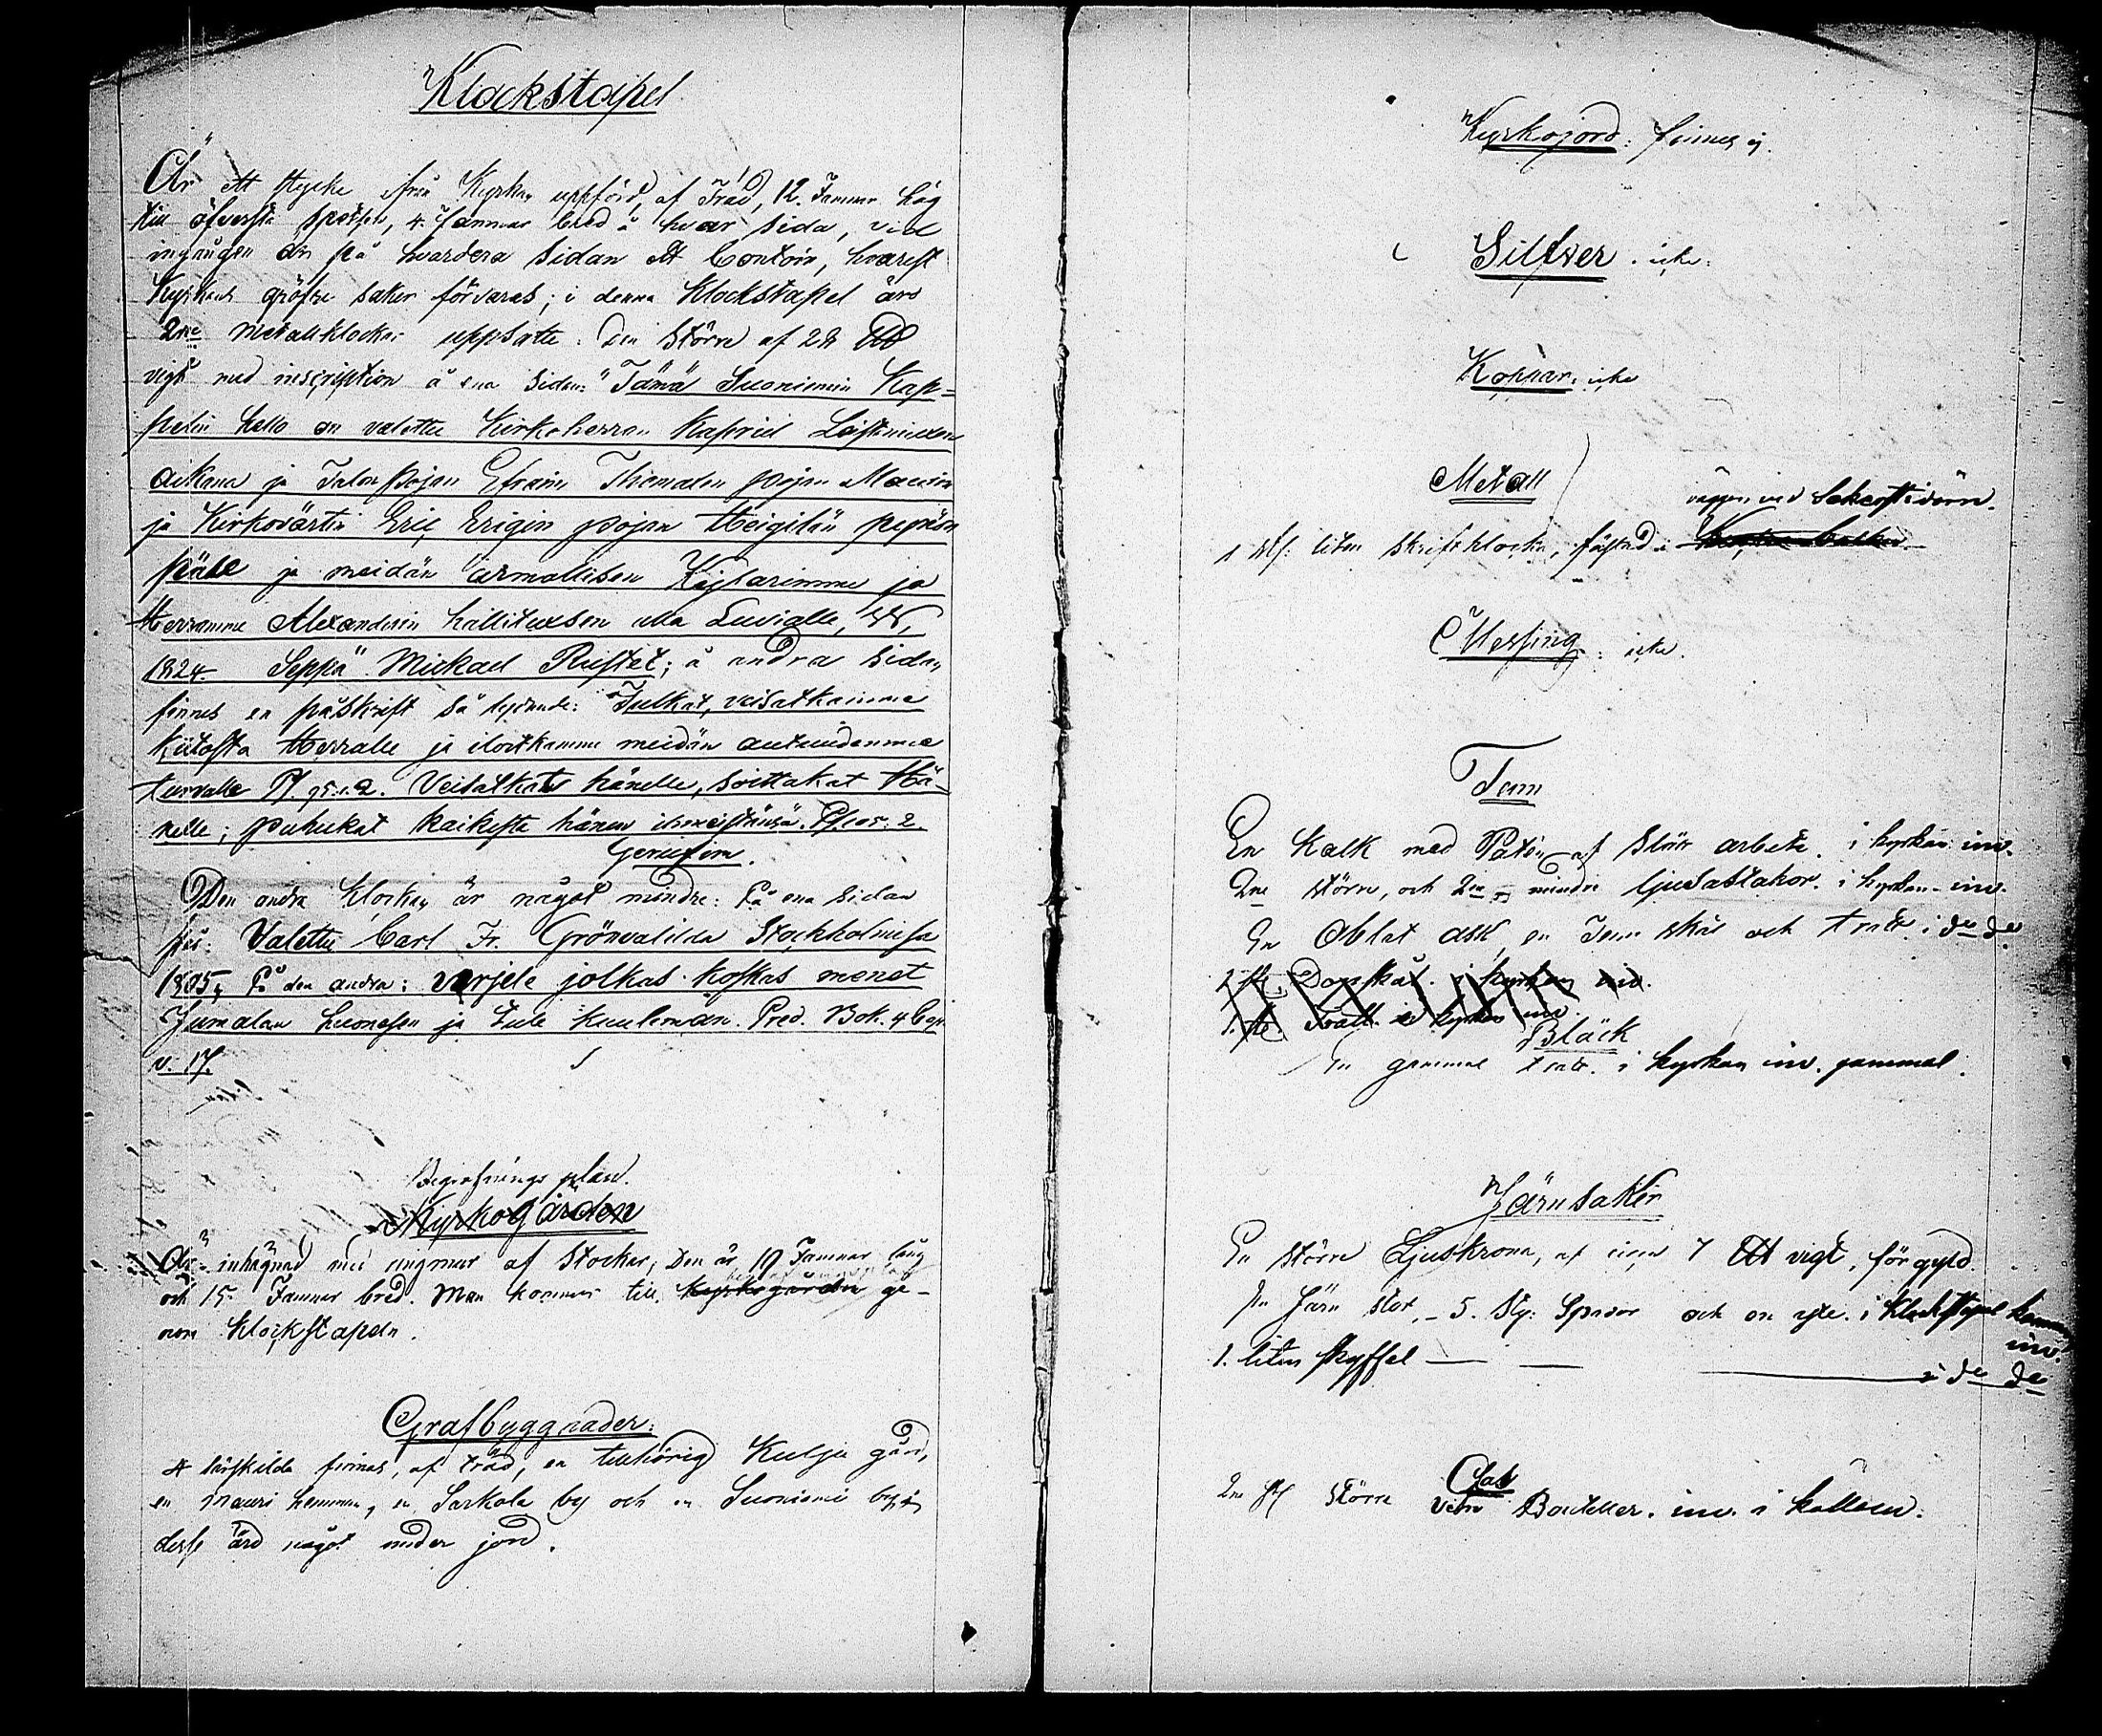 Klockstapel
Är ett stycke ifrån Kyrkan uppförd, af Träd, 12. Famnar hög
till öfversta spetsen, 4. famnar bred å hvar sida, vid
ingången är på hvardera sidan ett Contoir, hvarest
Kyrkans gröfre saker förvaras; i denna Klockstapel äro
2ne metallklockor uppsatte: Den större af 28
vigt med inscription å ena sidan: "Tämä Suoniemin Kap-
pelin kello on valettu Kirkoherran Kapriel
aikana ja Talon pojan Efraim Thomaln pojan Maurin
ja Kirkovärtin Eric Erigin pojan
päälle ja meidän armollisen Keisarimme ja
Herramme Alexanderin hallituxsen alla Luvialla,
1824 Seppä" Mickael Rustet; å andra sidan
finnes en påskrift så lydande: Tulkat, veisatkamme
kiitosta Herralle ja iloitkamme meidän autuudemme
turvalle Ps. 95. 1.2. Veisatkat hänelle, soittakat Hä-
nelle; puhukat kaikesta hänen ihmeistänsä. Ps. 105. 2.
Den andra Klockan är något mindre: På ena sidan
Valettu Carl Fr. Grönvalilda Stockholmisa
1805, På den andra: varjele jalkas koskas menet
Jumalan huonesen ja tule kuuleman. Pred. Bok. 4 Cap.
v. 17.
Begrafnings plan.
Kyrkogården
Är inhägnad med ringmur af stockar; Den är 19 Famnar lång
och 15. Famnar bred. Man kommer till kyrkogården ge-
nom klockstapeln.
Grafbyggnader:
4 särskilda finnas, af träd, en tillhörig Kulju gård,
en Mauri hemman, en Sarkola by och en Suoniemi by;
desse äro något under jord.
Kyrkojord: finnes ej.
Silfver. icke.
Koppar. icke
Metall
väggen vid Sakerstidörrn.
1 st: liten skriftklocka, fästad i
Messing: icke.
Tenn
En Kalk med Patén af slätt arbete. i kyrkan inv.
2ne större, och 2ne mindre ljusastakor. i kyrkan inv.
En Oblat ask, en Tenn skål och tratt i do do
1. st. Dopskål. i kyrkan inv.
1. st. Tratt i kyrkan inv.
Bläck
En gammal tratt. i kyrkan inv. gammal.
Järnsaker
En större Ljuskrona, af circa 7 vigt, förgyld.
En Järn stör, 5. sty: Spador och en yxe. i Klockstapel
inv.
1. liten skyffel i do do
Glas
2ne st större Vitn Bouteller. inv. i källaren.